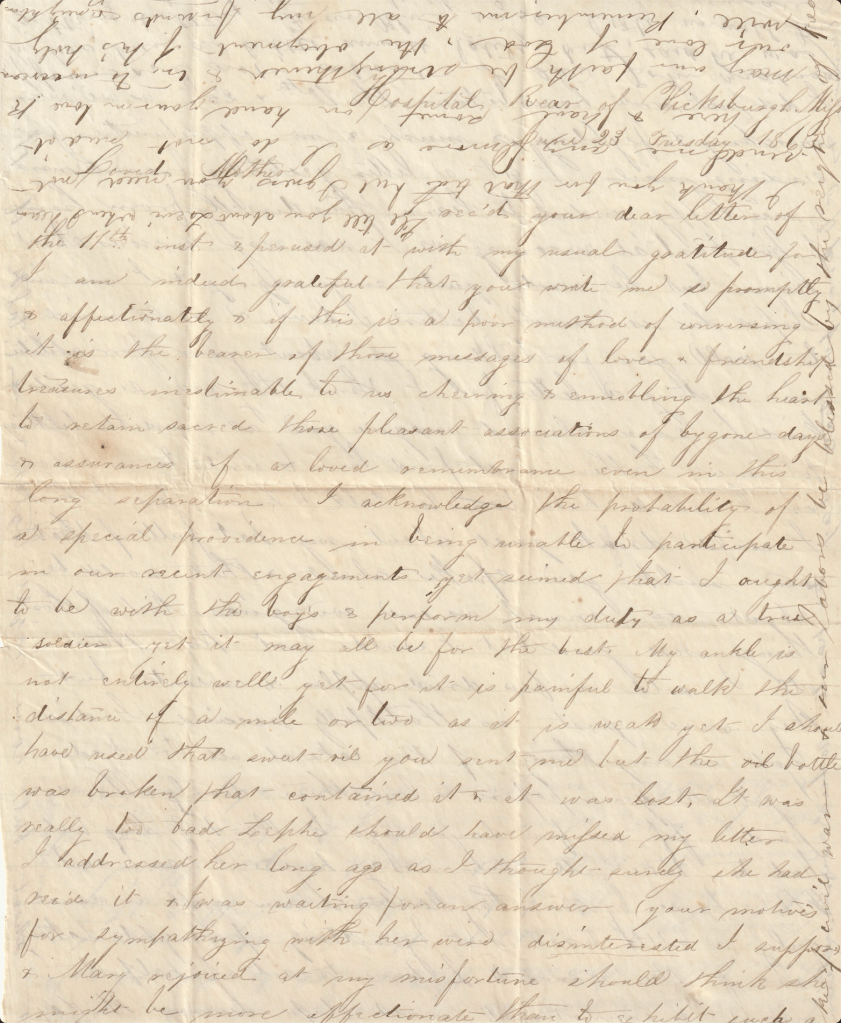 Hospital Rear of Vicksburgh Miss
June 23 Tuesday 1863
Loved Mother
rec,d your dear letter of
the 11th inst & perused it with my usual gratitude for
I am indeed grateful that you write me so promptly
& affectionately & if this is a poor method of conversing
it is the bearer of those messages of love & friendship
treasures inestimable to us cheering & ennobling the heart
to retain sacred those pleasant associations of bygone days
& assurances of a loved remembrance even in this
long separation I acknowledge the probability of
a special providence in being unable to participate
in our recent engagements yet seimed that I ought
to be with the boys & perform my duty as a true
soldier yet it may all be for the best. My ankle is
not entirely well yet for it is painful to walk the
distance of a mile or two as it is weak yet I should
have used that sweet oil you sent me but the oil bottle
was broken that contained it & it was lost, It was
really too bad Zephe should have missed my letter
I addressed her long ago as I thought surely she had
rec'd it & was waiting for an answer (your motives
for sympathizing with her were disinterested I suppose
& Mary rejoiced at my misfortune should think she
might be more affectionate than to exhibit such a
I thank you for that but I guess you need not
send me any more as I do not need it
here & have some on hand yours in love
may our faith be strengthened &
love of God & the obeyment of his holy
will, Remember me to all my friends
civil war &
labors be blessed by the